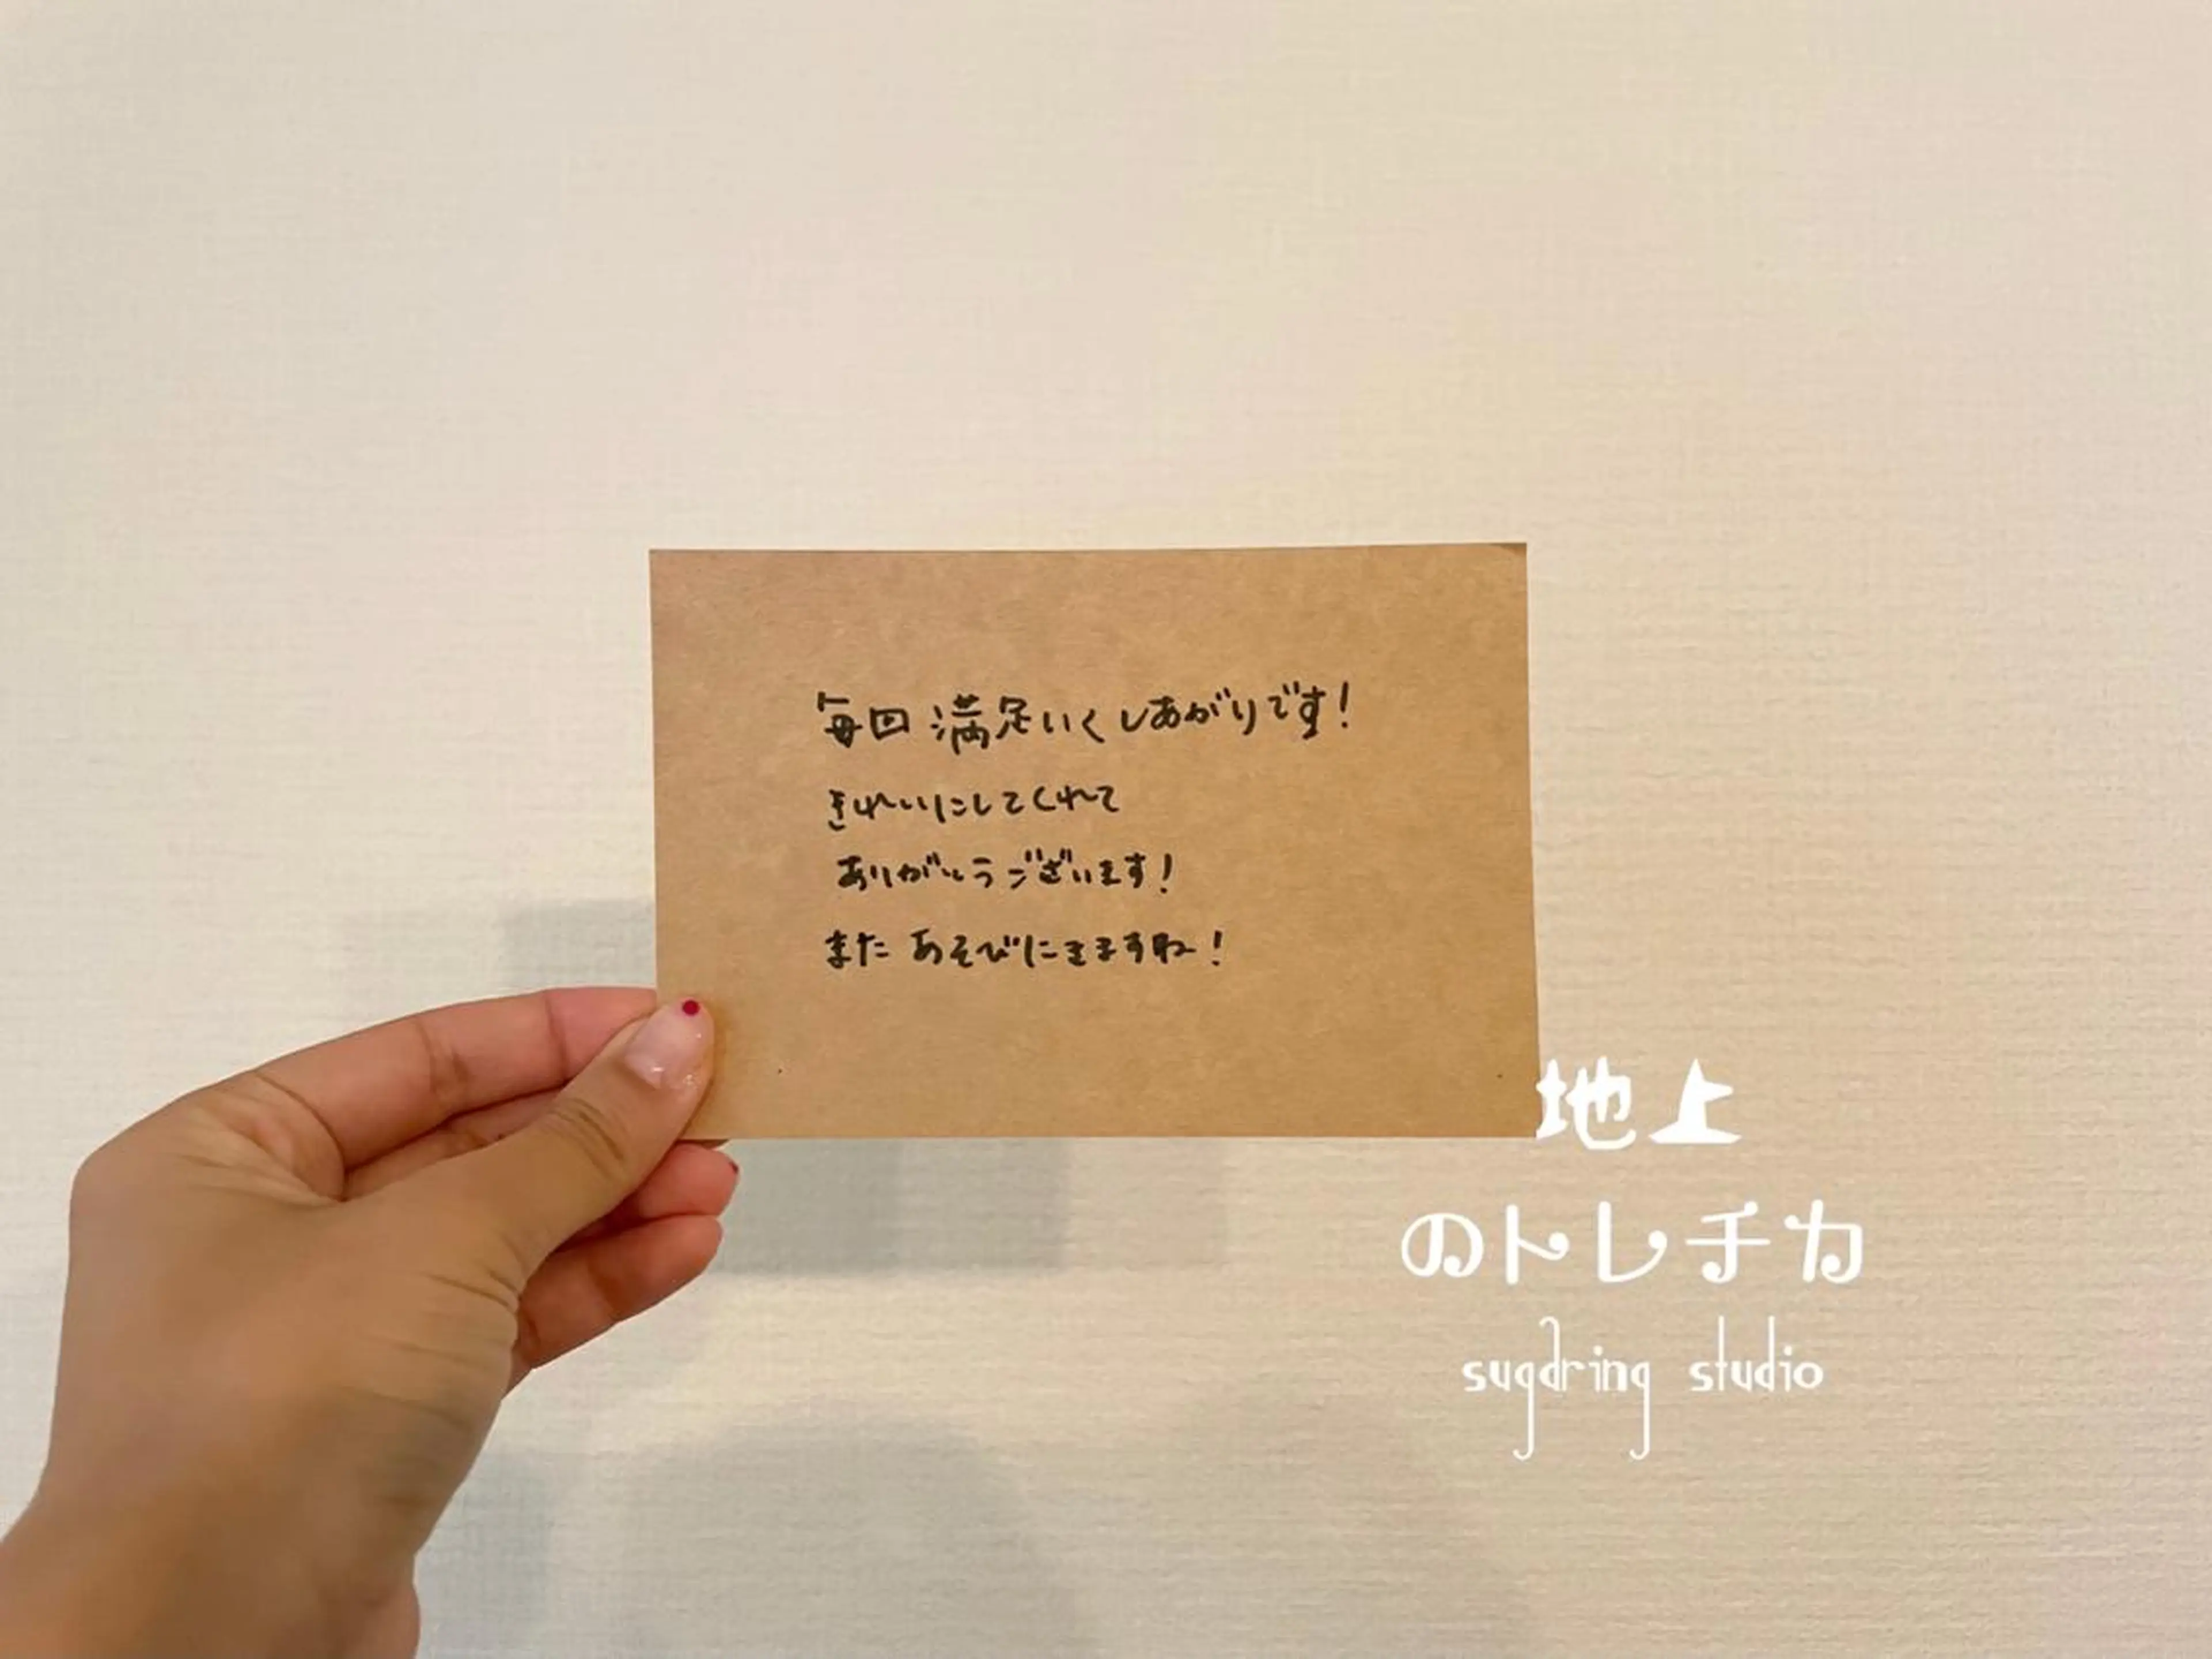 毎回 満足いくしあがりです!
きれいにしてくれて
ありがとうございます!
また あそびにきますね!
地上
のトレチカ
sugdring studio